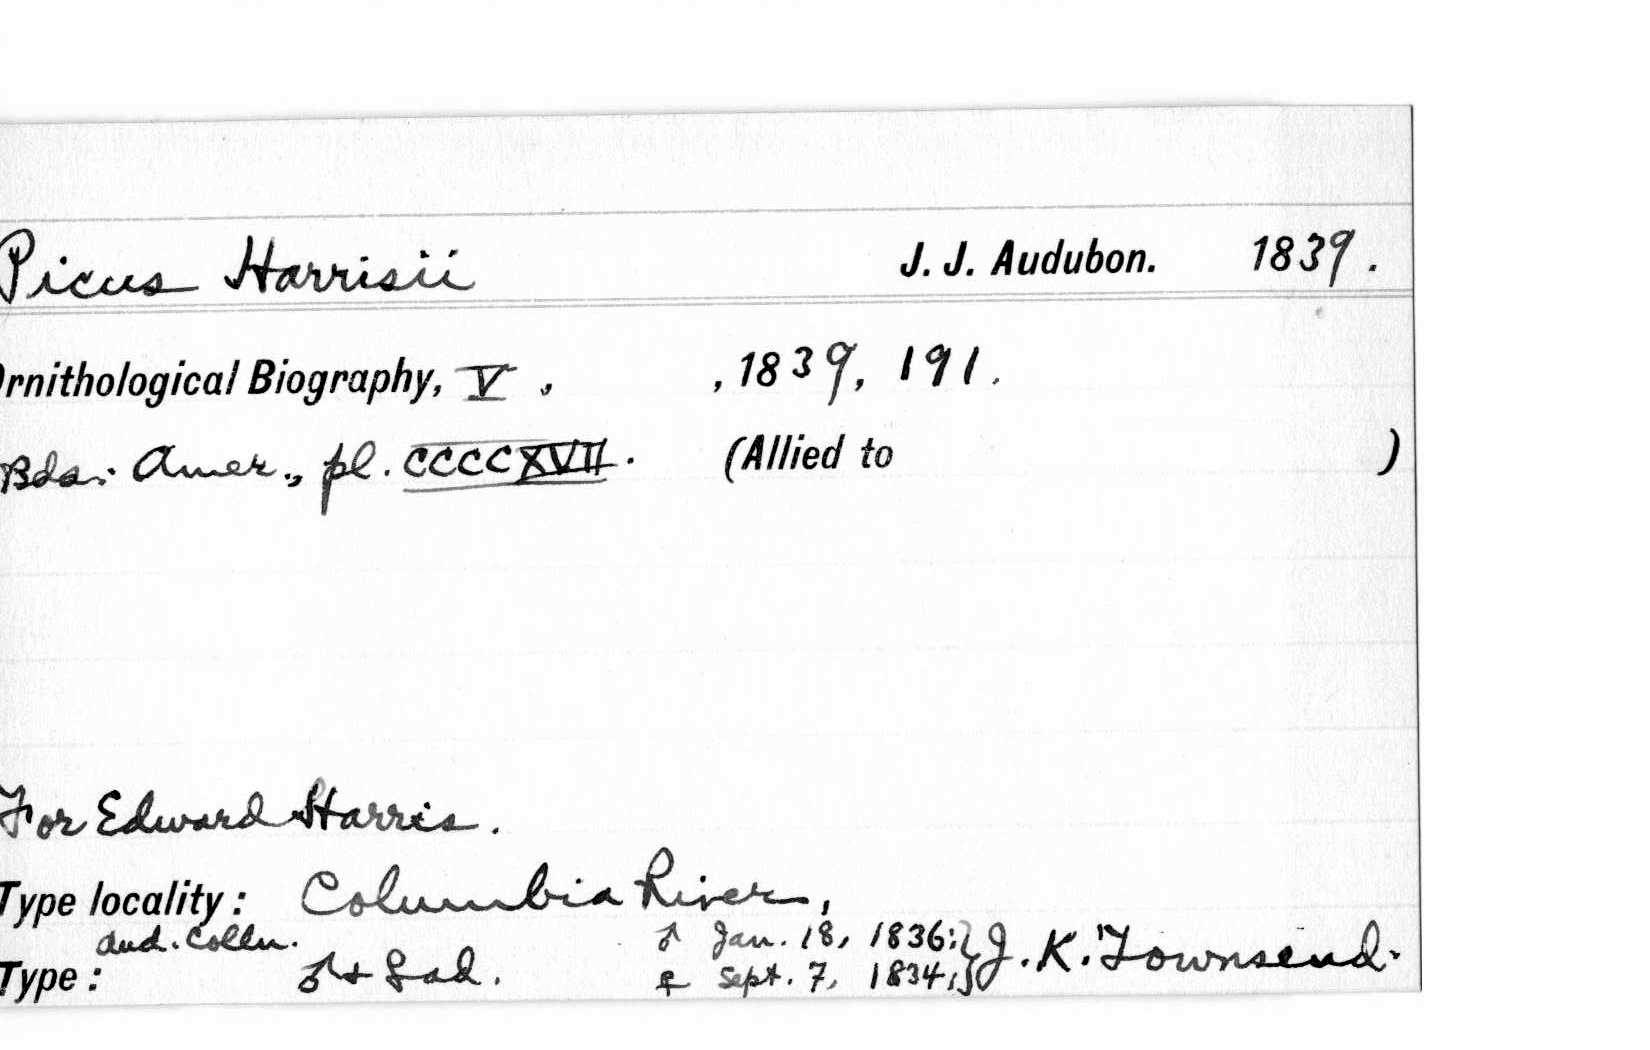 Picus Harrisii J. J. Audubon. 1839.
Ornithological Biography, V, , 1839, 191.
Bds. Amer., pl. CCCCXVII. (Allied to )
For Edward Harris.
Type locality: Columbia River,
Aud. Colln. ♂ Jan. 18, 1836;} J. K. Townsend.
Type: ♂ + ♀ ad. ♀ Sept. 7, 1834,}